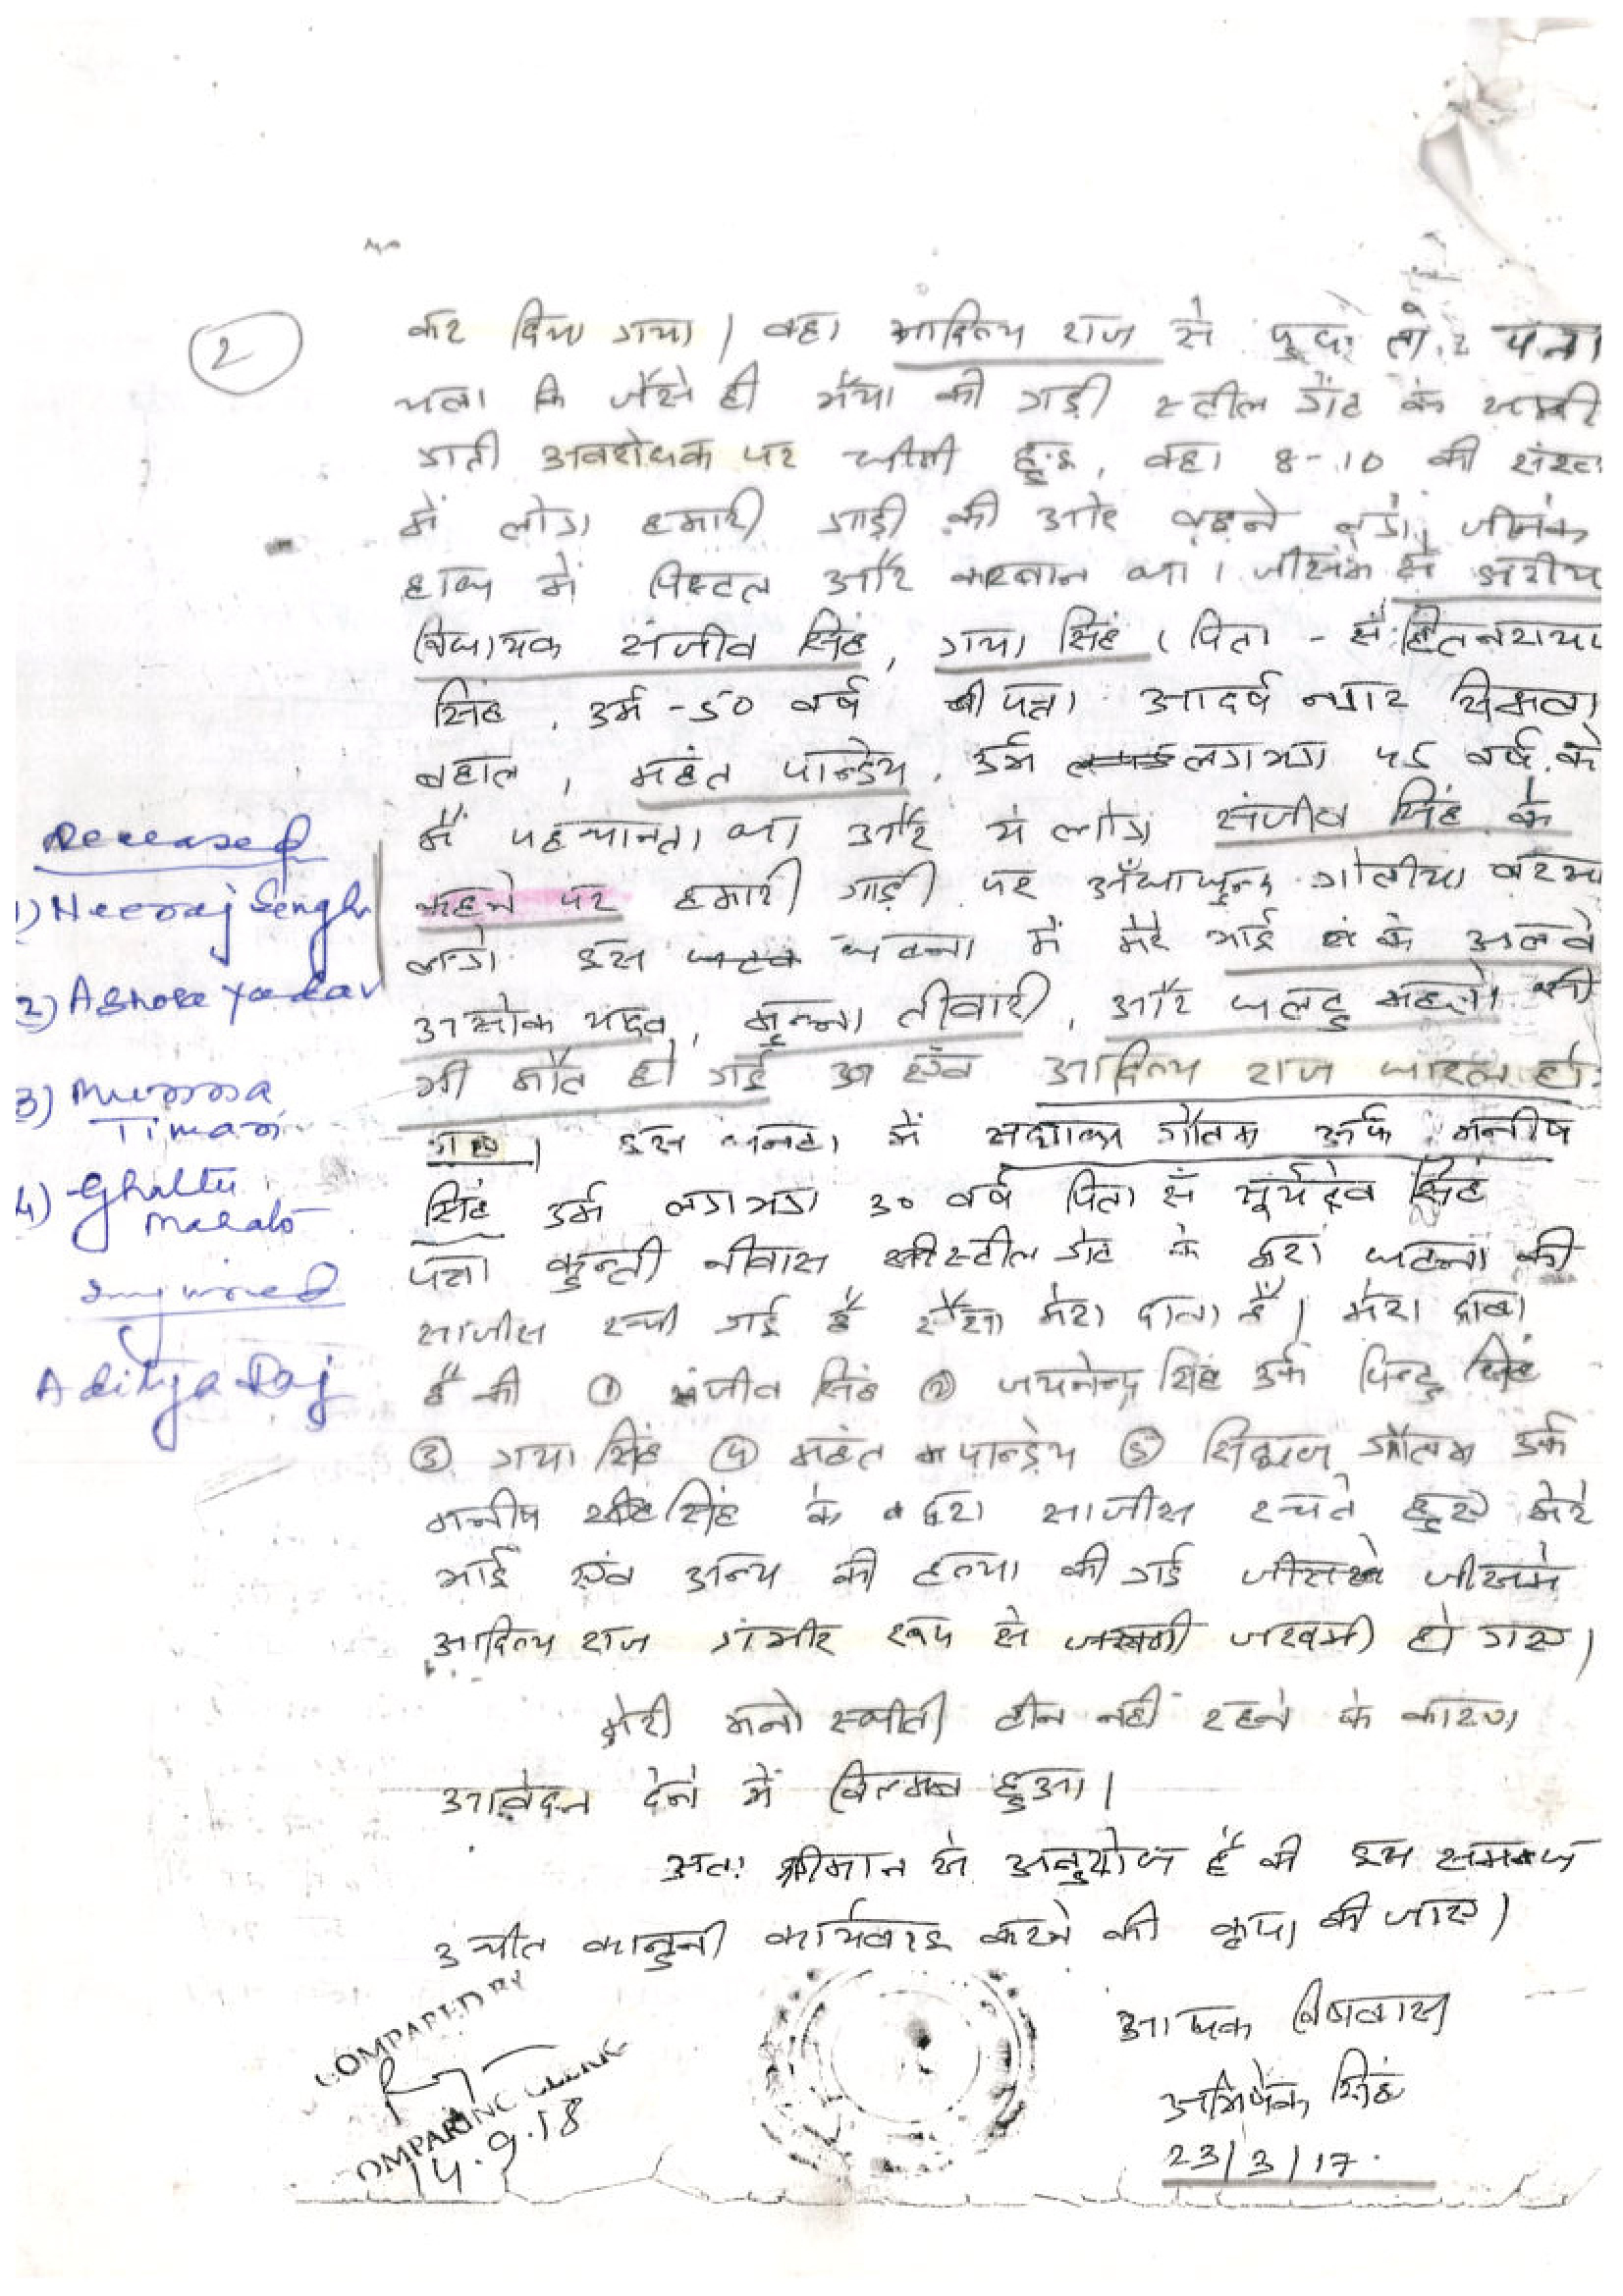 2
कर दिया गया। वहा आदित्य राज से पुछा तो पता
चला कि जैसे ही भैया की गाड़ी स्टील गेट के पास
गती अवरोधक पर धीमी हुइ, वहा 8-10 की संख्या
में लोग हमारी गाड़ी की ओर बढ़ने लगे, जीनके
हाथ में पिस्टल और कारबान था। जीसमें से
विधायक संजीव सिंह, गया सिंह (पिता - स्व
सिंह, उर्म -50 वर्ष पत्ता आदर्ष नगर
बहाल, महंत पान्डेय, उर्म लगभग 45 वर्ष के
मैं पहचानता था और ये लोग संजीव सिंह के
कहने पर हमारी गाड़ी पर अँधाधुन्द गोलीया बरसा
लगे इस घटना में मेरे भाई के अलवे
असोक यादव, मुन्ना तीवारी, और घलटु महतो की
भी मौत हो गई एंव आदित्य राज घायल हो
गए। इस घनटा में गौतम उर्फ मनीष
सिंह उर्म लगभग 30 वर्ष पिता स्व सूर्यदेव सिंह
पत्ता कुन्ती नीवास स्टील गेट के द्वारा घटना की
साजीस रची गई है ऐसा मेरा दावा है। मेरा दावा
है की ① संजीव सिंह ② जयनेन्द्र सिंह उर्फ पिन्टु सिंह
③ गया सिंह ④ महंत पान्डेय ⑤ गौतम उर्फ
मनीष सिंह के द्वरा साजीस रचते हुए मेरे
भाई एंव अन्य की हत्या की गई जीसमे
आदित्य राज गंभीर रूप से जखमी हो गए।
मेरी मनो स्थीती ठीन नही रहने के कारण
आवेदन देने में विलमब हुआ।
अतः श्रीमान से अनुरोध है की इस
उचीत कानुनी कार्यवाइ करने की कृपा की जाए)
आपक विषवास
अभिषेक सिंह
23/3/17.
Deceased
1) Neeraj Singh
2) Ashoke Yadav
3) Munna
Tiwari
4) Ghaltu
Mahato
Injured
Aditya Raj
COMPARED BY
COMPARING CLERK
14.9.18